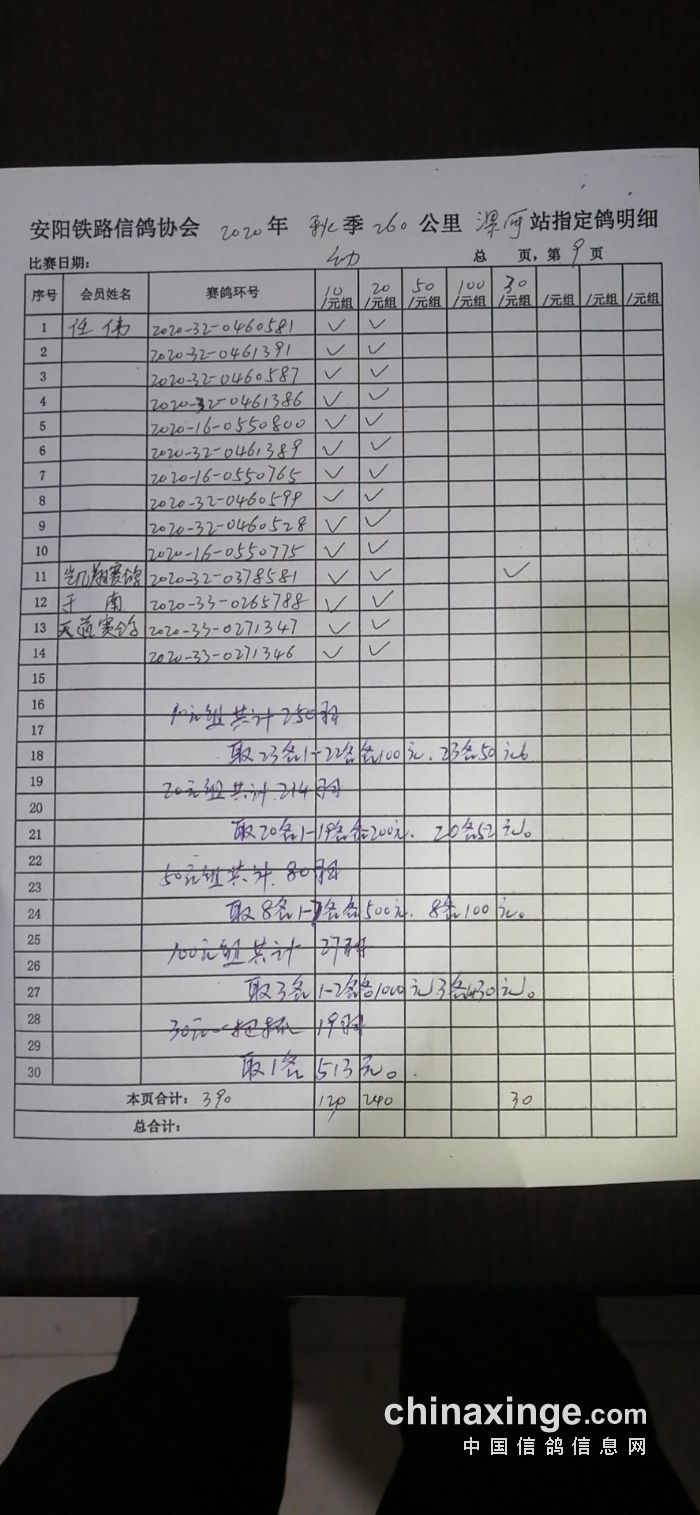 安阳铁路信鸽协会 2020年 秋季260公里 漯河 站指定鸽明细
比赛日期: 幼 总 页,第9页
序号 会员姓名 赛鸽环号 10/元组 20/元组 50/元组 100/元组 30/元组 /元组 /元组 /元组
1 任伟 2020-32-0460581 ✓ ✓
2 2020-32-0461391 ✓ ✓
3 2020-32-0460587 ✓ ✓
4 2020-32-0461386 ✓ ✓
5 2020-16-0550800 ✓ ✓
6 2020-32-0461389 ✓ ✓
7 2020-16-0550765 ✓ ✓
8 2020-32-0460599 ✓ ✓
9 2020-32-0460528 ✓ ✓
10 2020-16-0550775 ✓ ✓
11 凯翔赛鸽 2020-32-0378581 ✓ ✓ ✓
12 于南 2020-33-0265788 ✓ ✓
13 赛鸽 2020-33-0271347 ✓ ✓
14 2020-33-0271346 ✓ ✓
15
16
17 10元组共计250羽
18 取23名1-22名各100元.23名50元。
19
20 20元组共计214羽
21 取20名1-19名各200元.20名52元。
22
23 50元组共计80羽
24 取8名1-7名各500元.8名100元。
25
26 100元组共计27羽
27 取3名1-2名各1000元3名430元。
28
29 30元一把抓19羽
30 取1名513元。
本页合计: 390 120 240 30
总合计:
chinaxinge.com
中国信鸽信息网